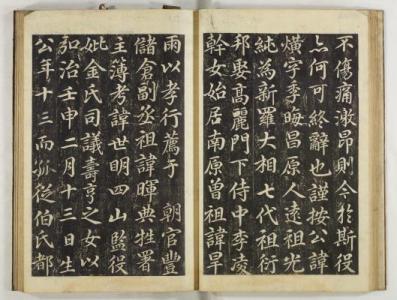 不傷痛激昂則今於斯役
亦何可終辭也謹按公諱
熿字季晦昌原人遠祖光
純為新羅大相七代祖衍
邦娶高麗門下侍中李凌
幹女始居南原曽祖諱旱
雨以孝行薦于 朝官豊
儲倉副丞祖諱暉典牲署
主薄考諱世明四山監役
妣金氏司議壽亨之女以
弘治壬申二月十三日生
公年十三而孤從伯氏都